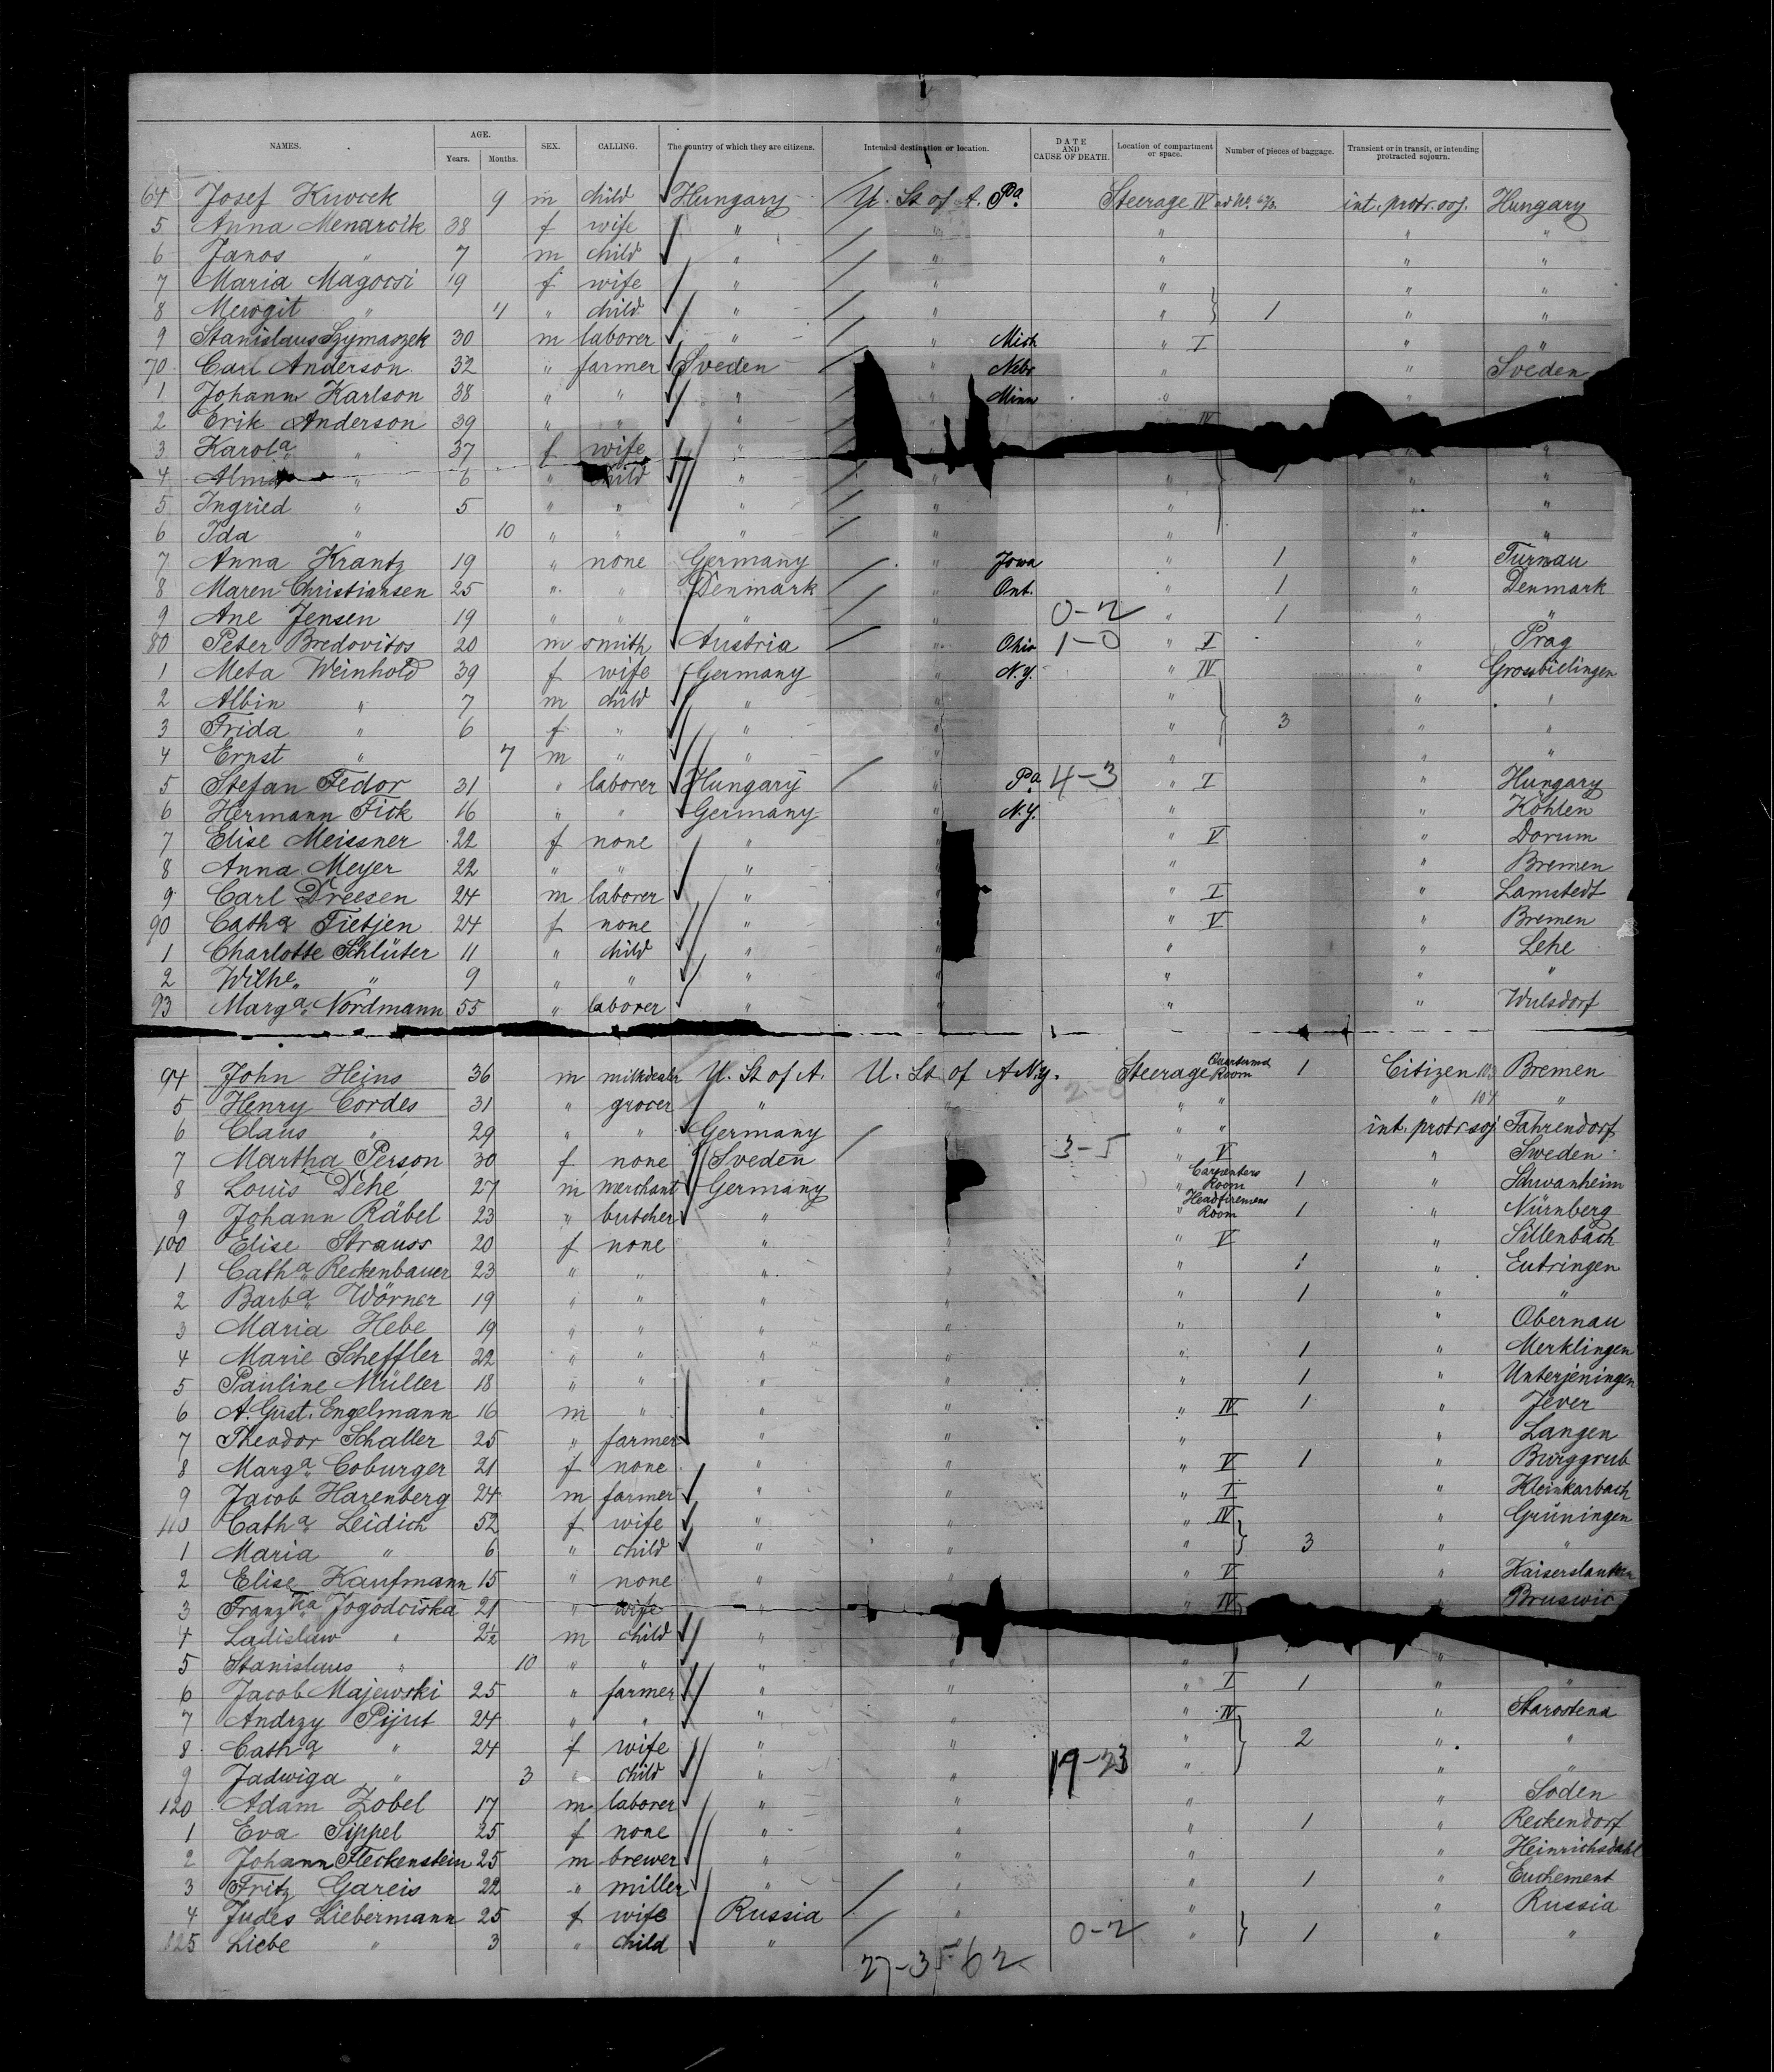 NAMES. AGE. SEX. CALLING. The country of which they are citizens. Intended destination or location. DATE AND CAUSE OF DEATH. Location of compartment or space. Number of pieces of baggage. Transient or in transit, or intending protracted sojourn.
Years. Months.
64 Josef 9 m child Hungary U. St of A. Pa. Steerage IV int. protr. soj. Hungary
5 Anna Menarcik 38 f wife " " " " "
6 Janos " 7 m child " " " " "
7 Maria Magocsi 19 f wife " " " " "
8 " " child " " " 1 " "
9 Stanislaus Szymaszek 30 m laborer " " Mich " I " "
70 Carl Anderson 32 " farmer Sveden " Nebr " " Sveden
1 Johann Karlson 38 " " " " Minn " "
2 Erik Anderson 39 " " " IV
3 Karola " 37 f wife " " "
4 Alma " 6 " child " " " 1 " "
5 Ingried " 5 " " " " " " "
6 Ida " 10 " " " " " " "
7 Anna Krantz 19 " none Germany " Iowa " 1 " Turnau
8 Maren Christiansen 25 " " Denmark " Ont. " 1 " Denmark
9 Ane Jensen 19 " " " " 0-2 " 1 " "
80 Peter Bredovitos 20 m smith Austria " Ohio 1-0 " I " Prag
1 Meta Weinhold 39 f wife Germany " N.Y. " IV " Grossbielingen
2 Albin " 7 m child " " " " "
3 Frida " 6 f " " " " 3 " "
4 Ernst " 7 m " " " " " "
5 Stefan Fedor 31 " laborer Hungary " Pa 4-3 " I " Hungary
6 Hermann Fick 16 " " Germany " N.Y. " " Köhlen
7 Elise Meissner 22 f none " " " V " Dorum
8 Anna Meyer 22 " " " " " " Bremen
9 Carl Dreesen 24 m laborer " " " I " Lamstedt
90 Catha Tietjen 24 f none " " " V " Bremen
1 Charlotte Schlüter 11 " child " " " " Lehe
2 Wilhe " 9 " " " " " " "
93 Marga Nordmann 55 " laborer " " " " Wulsdorf
94 John Heins 36 m milkdealer U. St of A. U. St of A N.Y. Steerage Room 1 Citizen Bremen
5 Henry Cordes 31 " grocer " " " " " 104 "
6 Claus " 29 " " Germany " " int. protr soj Fahrendorf
7 Martha Person 30 f none Sveden 3-5 " V " Sweden
8 Louis Dehé 27 m merchant Germany " Carpenters Room 1 " Schwanheim
9 Johann Räbel 23 " butcher " " " Headfiremens Room 1 " Nürnberg
100 Elise Strauss 20 f none " " " V " Sillenbach
1 Catha Reckenbauer 23 " " " " " 1 " Eutringen
2 Barba Wörner 19 " " " " " 1 " "
3 Maria Hebe 19 " " " " " " Obernau
4 Marie Scheffler 22 " " " " " 1 " Merklingen
5 Pauline Müller 18 " " " " " 1 " Unterjeningen
6 A. Gust. Engelmann 16 m " " " " IV 1 " Jever
7 Theodor Schaller 25 " farmer " " " " Langen
8 Marga Coburger 21 f none " " " V 1 " Burggrub
9 Jacob Harenberg 24 m farmer " " " I " Kleinkarbach
110 Catha Leidich 52 f wife " " " IV " Grüningen
1 Maria " 6 " child " " " 3 " "
2 Elise Kaufmann 15 " none " " " V "
3 Franzka Jogodciska 21 " wife " " " IV
4 Ladislaw " 2½ m child " "
5 Stanislaus " 10 " " " " " "
6 Jacob Majewski 25 " farmer " " " I 1 " "
7 Andrzy Pijut 24 " " " " " IV " Starostena
8 Catha " 24 f wife " " " 2 " "
9 Jadwiga " 3 " child " " 19-23 " " "
120 Adam Zobel 17 m laborer " " " " Soden
1 Eva Sippel 25 f none " " " 1 " Reckendorf
2 Johann Fleckenstein 25 m brewer " " " " Heinrichsdahl
3 Fritz Gareis 22 " miller " " " 1 " Euchement
4 Judes Liebermann 25 f wife Russia " " " Russia
125 Liebe " 3 " child " " 0-2 " 1 " "
27-35-62